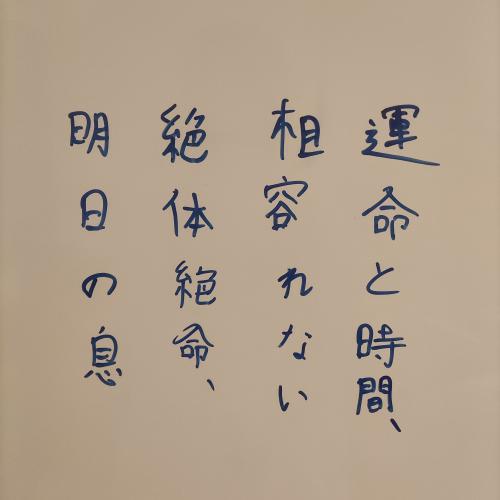 運命と時間、
相容れない
絶体絶命、
明日の息